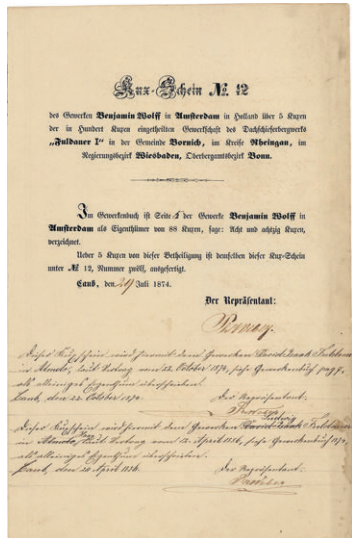 Kux-Schein № 12
des Gewerken Benjamin Wolff in Amsterdam in Holland über 5 Kuxen
der in Hundert Kuxen eingetheilten Gewerkschaft des Dachschieferbergwerks
„Fuldaner I" in der Gemeinde Bornich, im Kreise Rheingau, im
Regierungsbezirk Wiesbaden, Oberbergamtsbezirk Bonn.
Im Gewerkenbuch ist Seite 5 der Gewerke Benjamin Wolff in
Amsterdam als Eigenthümer von 88 Kuxen, sage: Acht und achtzig Kuxen,
verzeichnet.
Ueber 5 Kuxen von dieser Betheiligung ist demselben dieser Kux-Schein
unter № 12, Nummer zwölf, ausgefertigt.
Caub, den 29 Juli 1874.
Der Repräsentant:
Dieser Kuxschein wird hiermit dem Gewerken
in Almelo, laut Vertrag vom 22. October 1874, siehe Gewerkenbuch pag
als alleiniges Eigenthum überschrieben.
Caub, den 22. October 1874.
Der Repräsentant:
Dieser Kuxschein wird hiermit dem Gewerken
in Almelo laut Vertrag vom 12. April 1886, siehe Gewerkenbuch
als alleiniges Eigenthum überschrieben.
Caub, den 20 April 1886.
Der Repräsentant: